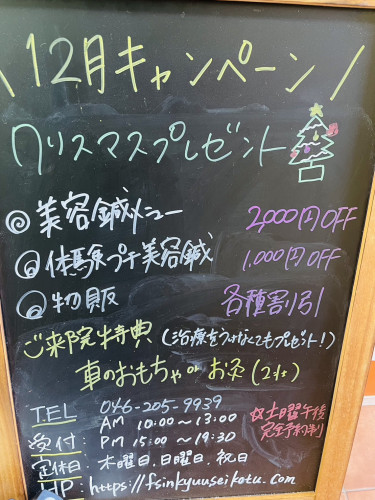 \ 12月キャンペーン /
クリスマスプレゼント
◎美容鍼メニュー 2,000円OFF
◎体験プチ美容鍼 1,000円OFF
◎物販 各種割引
ご来院特典 (治療をうけなくてもプレゼント!)
車のおもちゃor お灸 (2ヶ)
TEL 046-205-9939
受付: AM 10:00〜13:00
PM 15:00〜19:30
定休日: 木曜日、日曜日、祝日
HP: https://fsinkyuuseikotu.com
土曜日午後
完全予約制